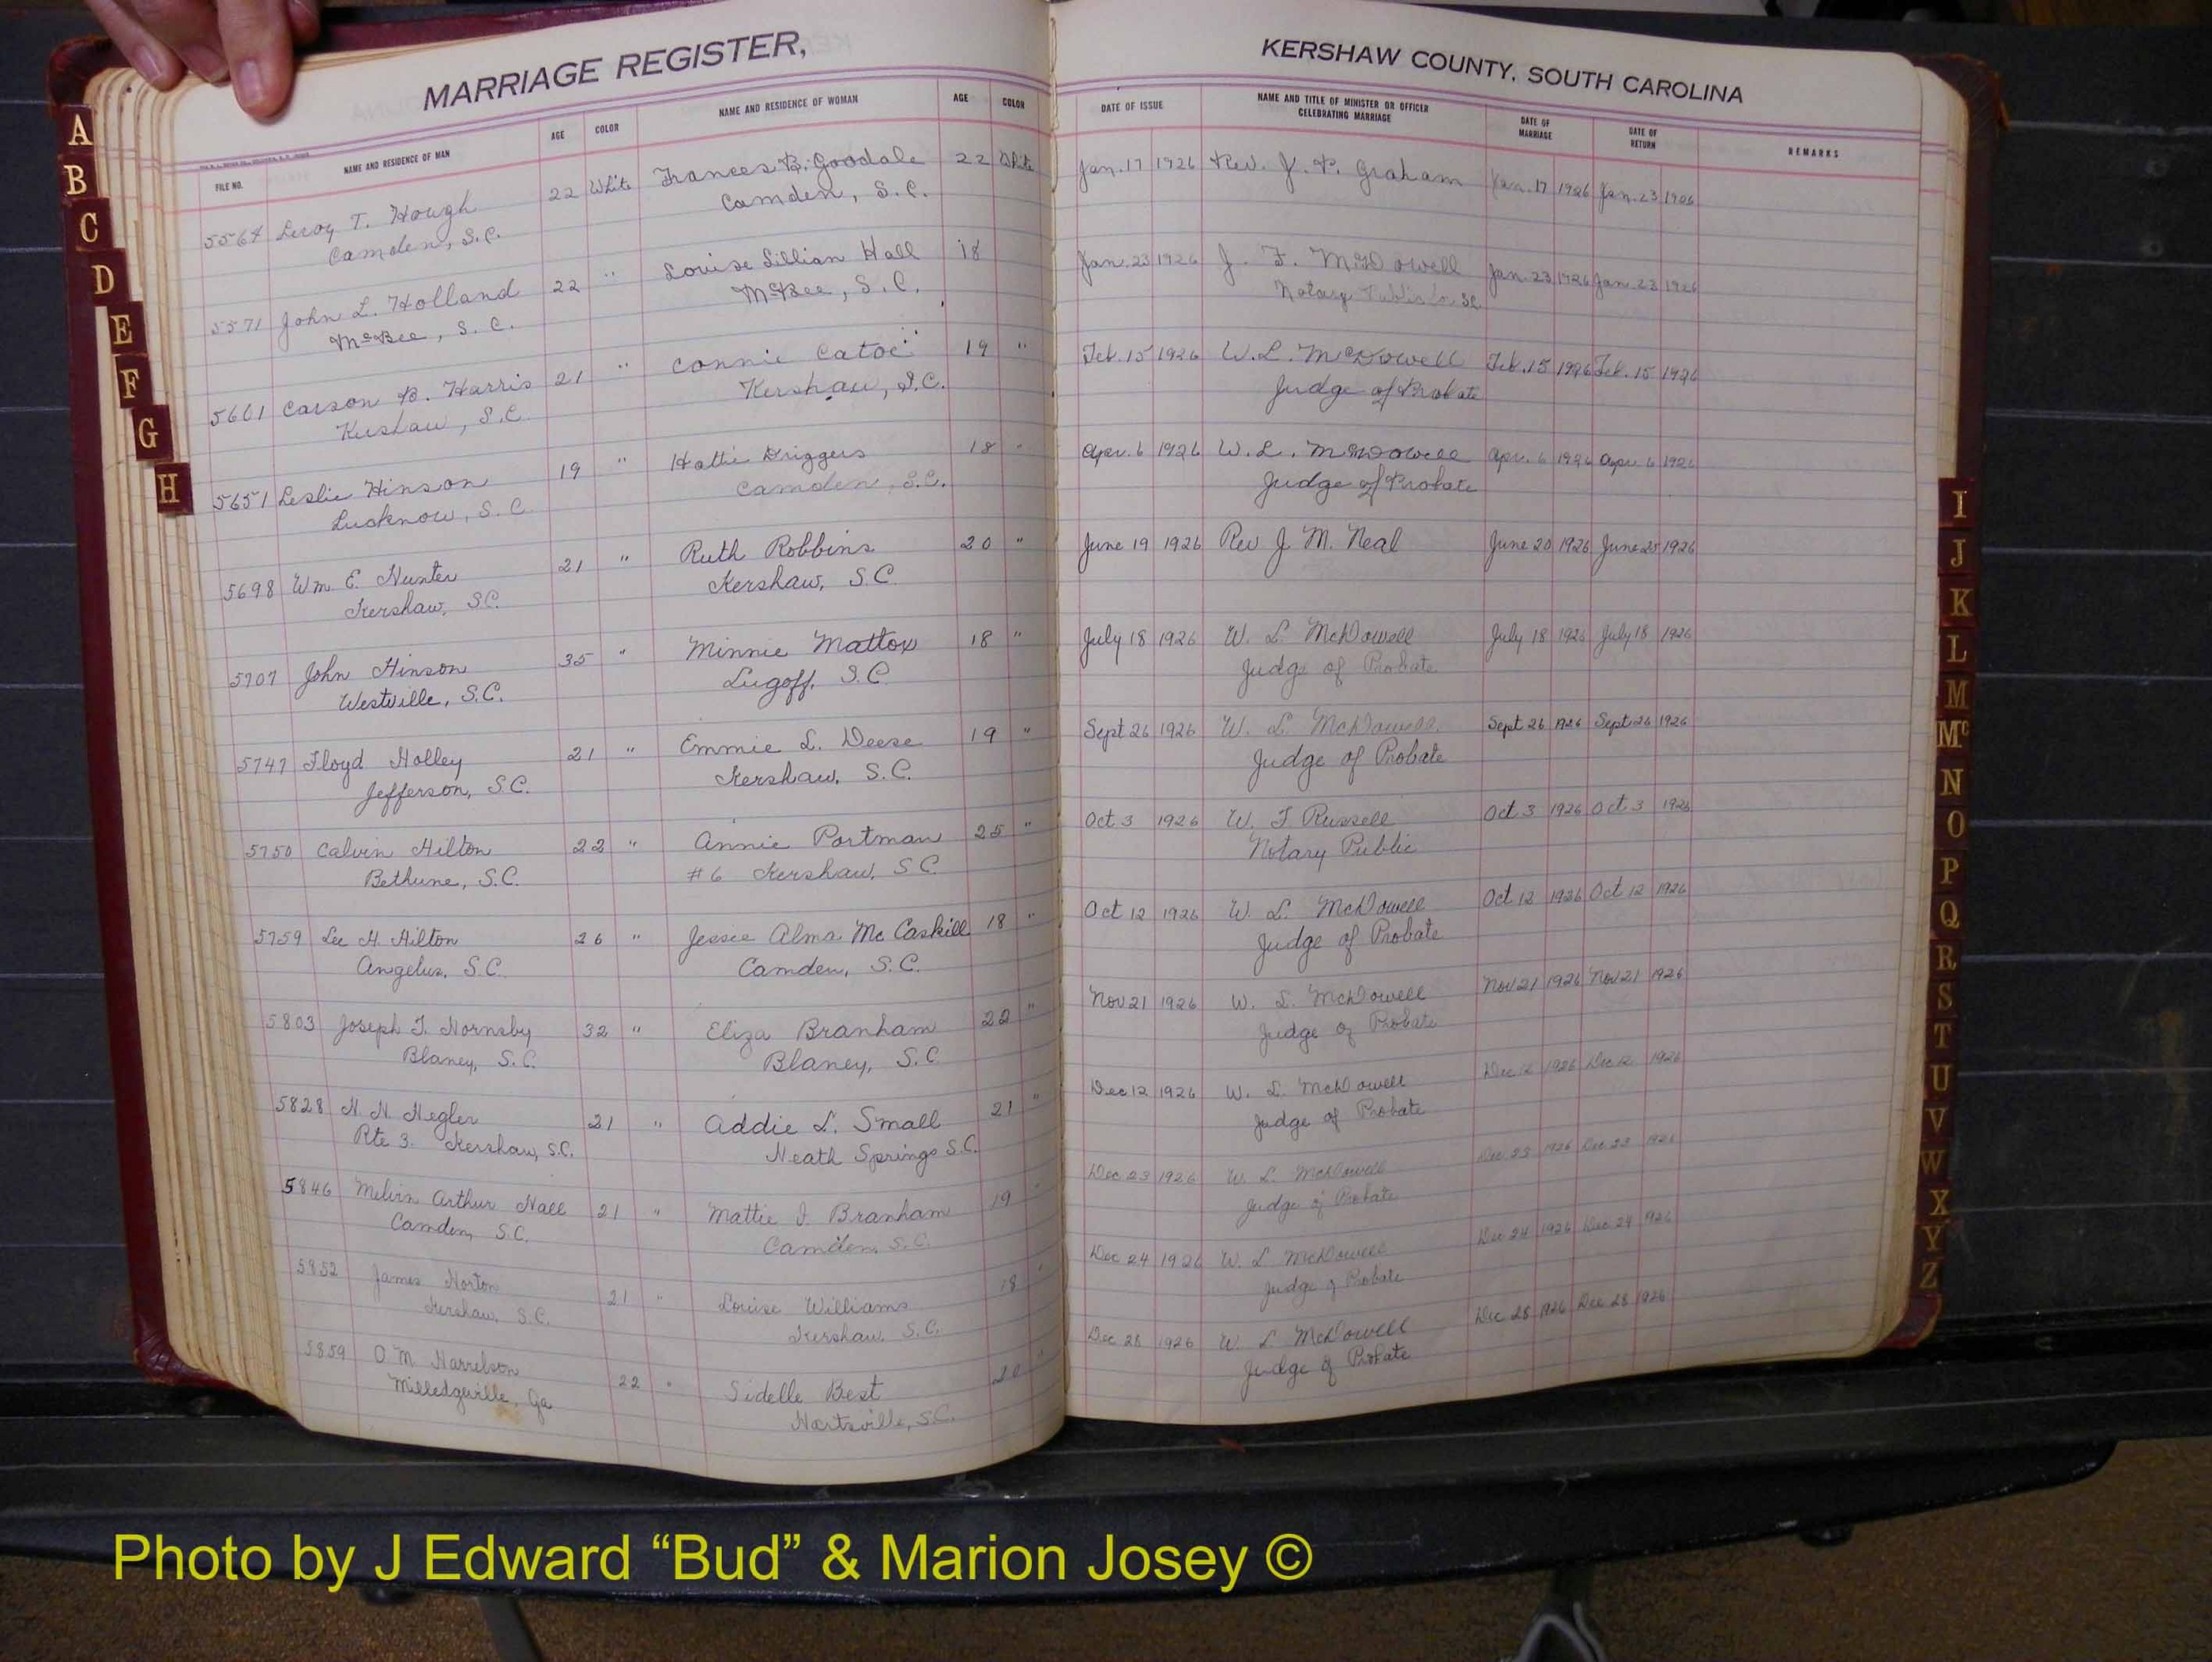 MARRIAGE REGISTER,
FILE NO. NAME AND RESIDENCE OF MAN AGE COLOR NAME AND RESIDENCE OF WOMAN AGE COLOR
5564 Leroy T. Hough 22 White Frances B. Goodale 22 White
Camden, S.C. Camden, S.C.
5571 John L. Holland 22 " Louise Lillian Hall 18
McBee, S.C. McBee, S.C.
5601 Carson B. Harris 21 " Connie Catoe 19 "
Kershaw, S.C. Kershaw, S.C.
5651 Leslie Hinson 19 " Hattie Driggers 18 "
Lucknow, S.C. Camden, S.C.
5698 Wm. E. Hunter 21 " Ruth Robbins 20 "
Kershaw, S.C. Kershaw, S.C.
5707 John Hinson 35 " Minnie Mattox 18 "
Westville, S.C. Lugoff, S.C.
5747 Floyd Holley 21 " Emmie L. Deese 19 "
Jefferson, S.C. Kershaw, S.C.
5750 Calvin Hilton 22 " Annie Portman 25 "
Bethune, S.C. #6 Kershaw, S.C.
5759 Lee H. Hilton 26 " Jessie Alma McCaskill 18 "
Angelus, S.C. Camden, S.C.
5803 Joseph T. Hornsby 32 " Eliza Branham 22 "
Blaney, S.C. Blaney, S.C.
5828 H. H. Hegler 21 " Addie L. Small 21 "
Rte 3. Kershaw, S.C. Heath Springs S.C.
5846 Melvin Arthur Hall 21 " Mattie I. Branham 19 "
Camden, S.C. Camden, S.C.
5852 James Horton 21 " Louise Williams 18 "
Kershaw, S.C. Kershaw, S.C.
5859 O. M. Harrelson 22 " Sidelle Best 20 "
Milledgeville, Ga Hartsville, S.C.
KERSHAW COUNTY, SOUTH CAROLINA
DATE OF ISSUE NAME AND TITLE OF MINISTER OR OFFICER CELEBRATING MARRIAGE DATE OF MARRIAGE DATE OF RETURN REMARKS
Jan. 17 1926 Rev. J. P. Graham Jan. 17 1926 Jan. 23 1926
Jan. 23 1926 J. F. McDowell Jan. 23 1926 Jan. 23 1926
Notary Public for SC
Feb. 15 1926 W. L. McDowell Feb. 15 1926 Feb. 15 1926
Judge of Probate
Apr. 6 1926 W. L. McDowell Apr. 6 1926 Apr. 6 1926
Judge of Probate
June 19 1926 Rev J. M. Neal June 20 1926 June 25 1926
July 18 1926 W. L. McDowell July 18 1926 July 18 1926
Judge of Probate
Sept 26 1926 W. L. McDowell. Sept 26 1926 Sept 26 1926
Judge of Probate
Oct 3 1926 W. F Russell Oct 3 1926 Oct 3 1926
Notary Public
Oct 12 1926 W. L. McDowell Oct 12 1926 Oct 12 1926
Judge of Probate
Nov 21 1926 W. L. McDowell Nov 21 1926 Nov 21 1926
Judge of Probate
Dec 12 1926 W. L. McDowell Dec 12 1926 Dec 12 1926
Judge of Probate
Dec 23 1926 W. L. McDowell Dec 23 1926 Dec 23 1926
Judge of Probate
Dec 24 1926 W. L McDowell Dec 24 1926 Dec 24 926
Judge of Probate
Dec 28 1926 W. L McDowell Dec 28 1926 Dec 28 1926
Judge of Probate
A
B
C
D
E
F
G
H
I
J
K
L
M
Mc
N
O
P
Q
R
S
T
U
V
W
X
Y
Z
Photo by J Edward “Bud” & Marion Josey ©